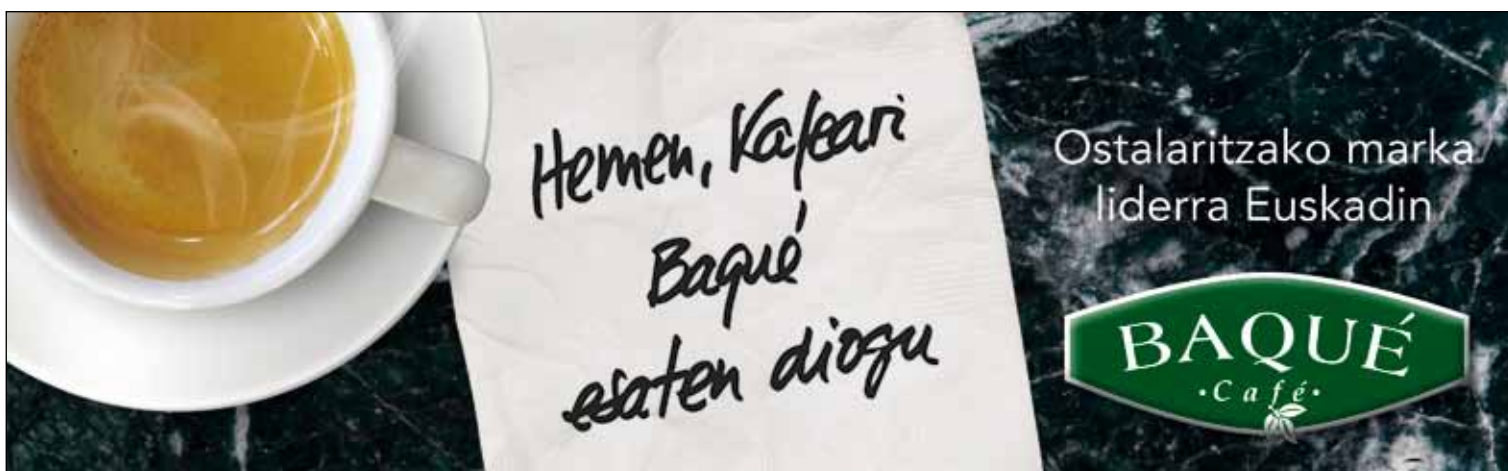 Hemen, Kafeari
Baqué
esaten diogu
Ostalaritzako marka
liderra Euskadin
BAQUÉ
·Café·